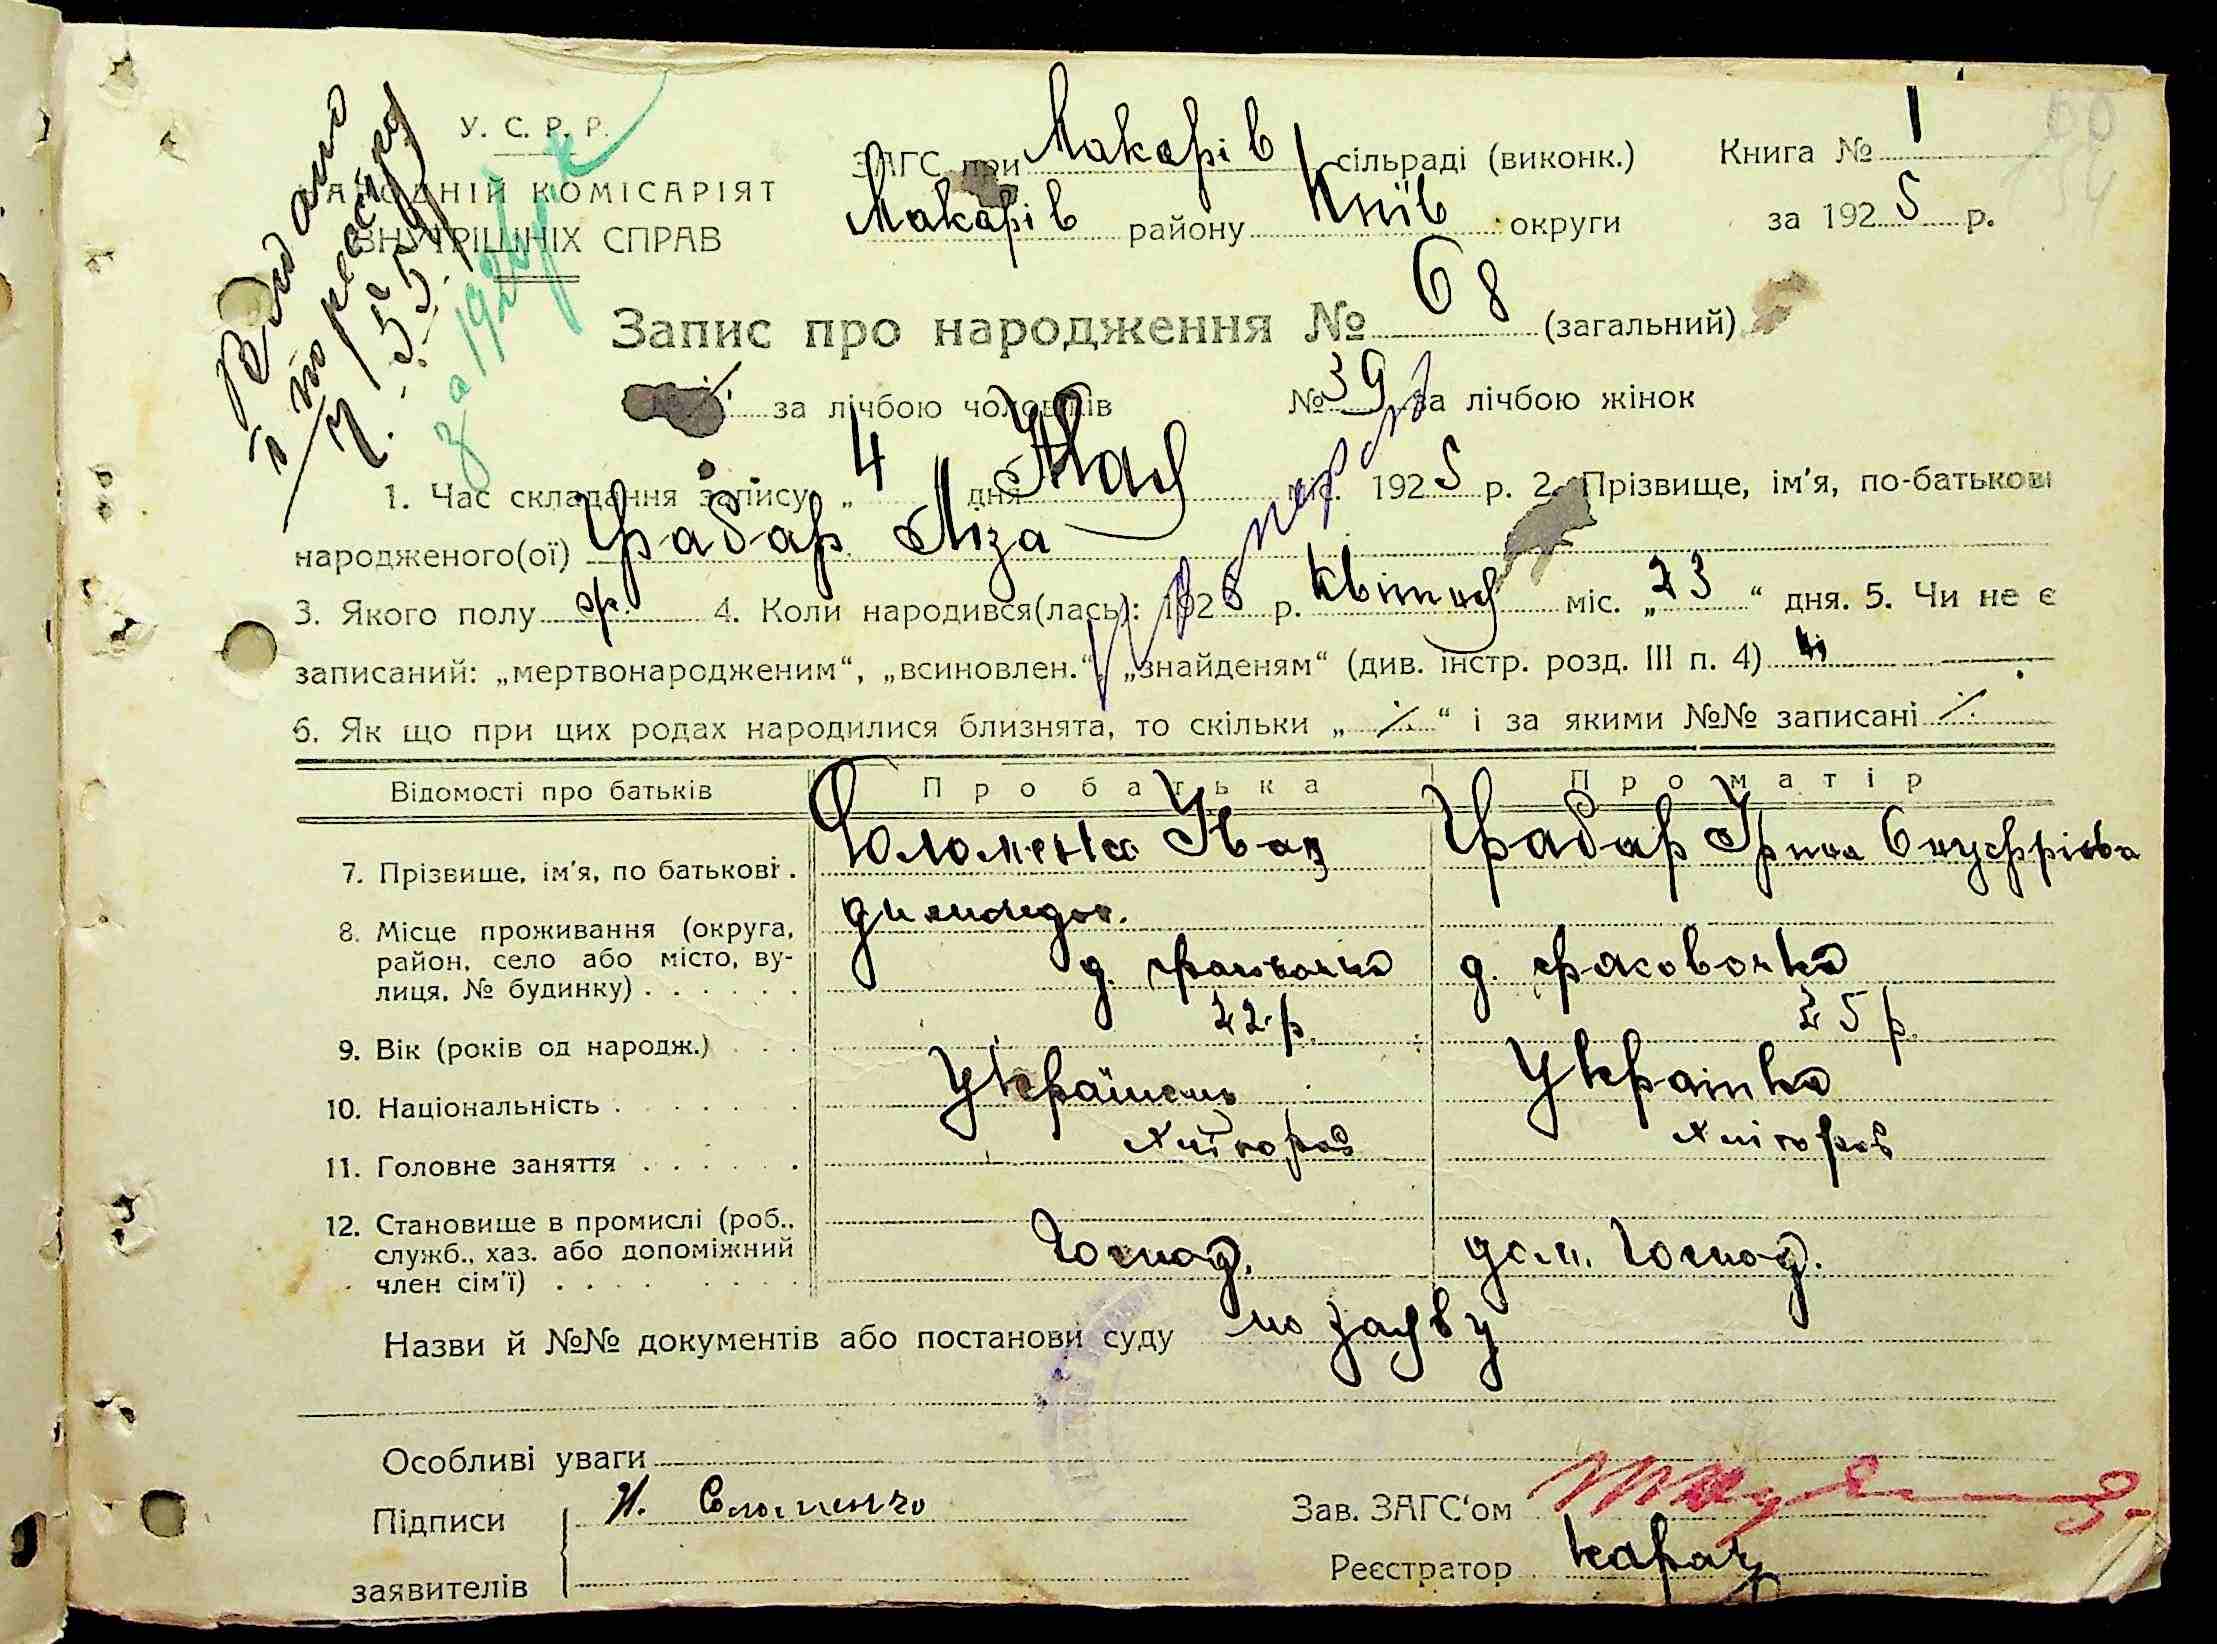 У. С. Р. Р.
НАРОДНІЙ КОМІСАРІЯТ
ВНУТРІШНІХ СПРАВ
Видано
за 192
ЗАГС при Макарів сільраді (виконк.) Книга № 1
Макарів району Київ округи за 1925 р.
Запис про народження № 68 (загальний)
за лічбою чоловіків № 39 за лічбою жінок
1. Час складання запису „ 4 дня Мая міс. 1925 р. 2. Прізвище, ім'я, по-батькові
народженого(ої) Грабар Ліза
3. Якого полу ж. 4. Коли народився(лась): 1925 р. Квітня міс. „23“ дня. 5. Чи не є
записаний: „мертвонародженим“, „всиновлен.“, „знайденям“ (див. інстр. розд. III п. 4) ні
6. Як що при цих родах народилися близнята, то скільки „ ⁒ “ і за якими №№ записані ⁒
Відомості про батьків Про батька Про матір
7. Прізвище, ім'я, по батькові . Іван Грабар Ірина Онуфріева
8. Місце проживання (округа,
район, село або місто, ву-
лиця, № будинку) . . . . . . д. д. Фасовочка
9. Вік (років од народж.) . . . 22 р. 25 р.
10. Національність . . . . . . . Українець Украінка
11. Головне заняття . . . . . . . Хлібороб Хлібороб
12. Становище в промислі (роб.,
служб., хаз. або допоміжний
член сім'ї) . . . . . . . . . Господ. дом. Господ.
Назви й №№ документів або постанови суду по заяву
Особливі уваги
Підписи И. Соломенко Зав. ЗАГС'ом
заявителів Реєстратор